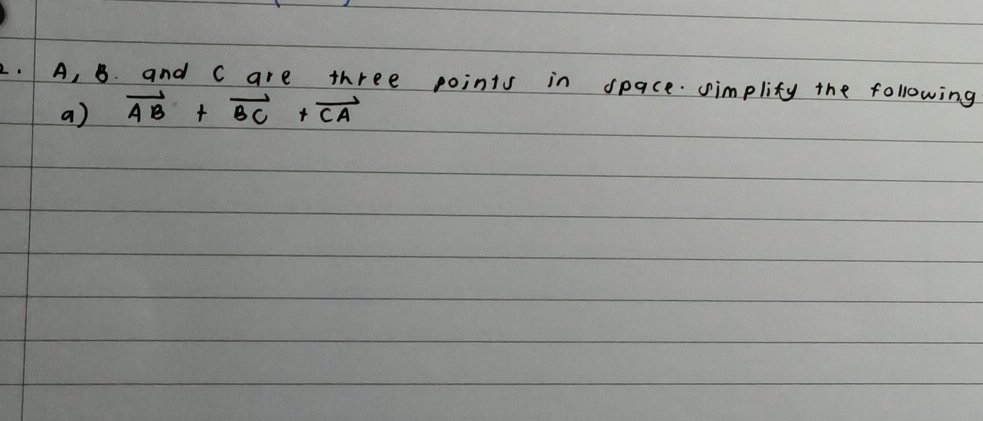 2. A, B. and C are three points in space. simplify the following
a) $\overrightarrow{AB} + \overrightarrow{BC} + \overrightarrow{CA}$